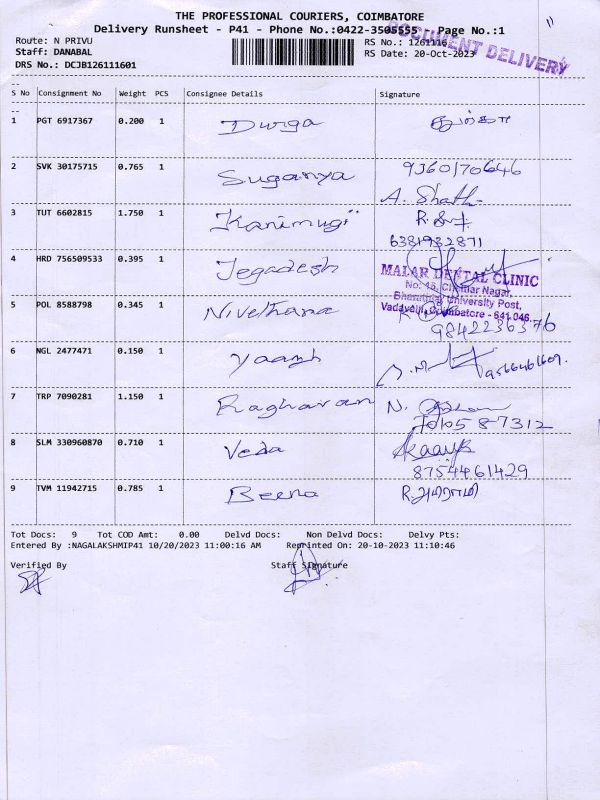 THE PROFESSIONAL COURIERS, COIMBATORE
Delivery Runsheet - P41 - Phone No.:0422-3505555 Page No.:1
Route: N PRIVU RS No.: 1261116
DOCUMENT DELIVERY
Staff: DANABAL RS Date: 20-Oct-2023
DRS No.: DCJB126111601
S No Consignment No Weight PCS Consignee Details Signature
1 PGT 6917367 0.200 1 Durga
2 SVK 30175715 0.765 1 Suganya 9360170646
A. Shath
3 TUT 6602815 1.750 1 Kanimugii
6381932871
4 HRD 756509533 0.395 1 Jegadesh
MALAR DENTAL CLINIC
No. 45, Chinnar Nagar,
Bharathiar University Post,
Vadavalli, Coimbatore - 641 046.
5 POL 8588798 0.345 1 Nivethana
9842236376
6 NGL 2477471 0.150 1 Yaazh
9566461609.
7 TRP 7090281 1.150 1 Raghavan N.
8 SLM 330960870 0.710 1 Veda
8754461429
9 TVM 11942715 0.785 1 Beena R.அபிராமி
Tot Docs: 9 Tot COD Amt: 0.00 Delvd Docs: Non Delvd Docs: Delvy Pts:
Entered By :NAGALAKSHMIP41 10/20/2023 11:00:16 AM Reprinted On: 20-10-2023 11:10:46
Verified By Staff Signature